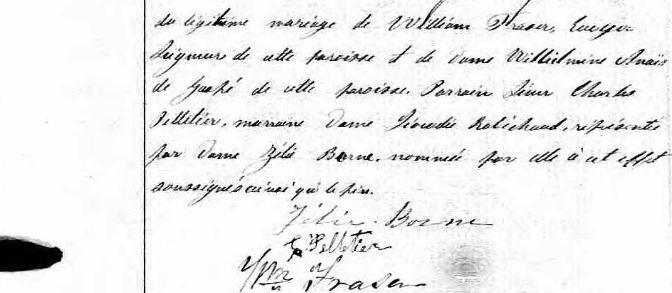 du légitime mariage de William Fraser, Ecuyer
Seigneur de cette paroisse et de dame Wilhelmine Anaïs
de Gaspé de cette paroisse. Parrain Sieur Charles
Pelletier, marraine dame Robichaud, représentée
par dame Zélie Borne, nommée par elle à cet effet
soussignés ainsi que le père.
Zélie Borne
C Pelletier
Wm Fraser